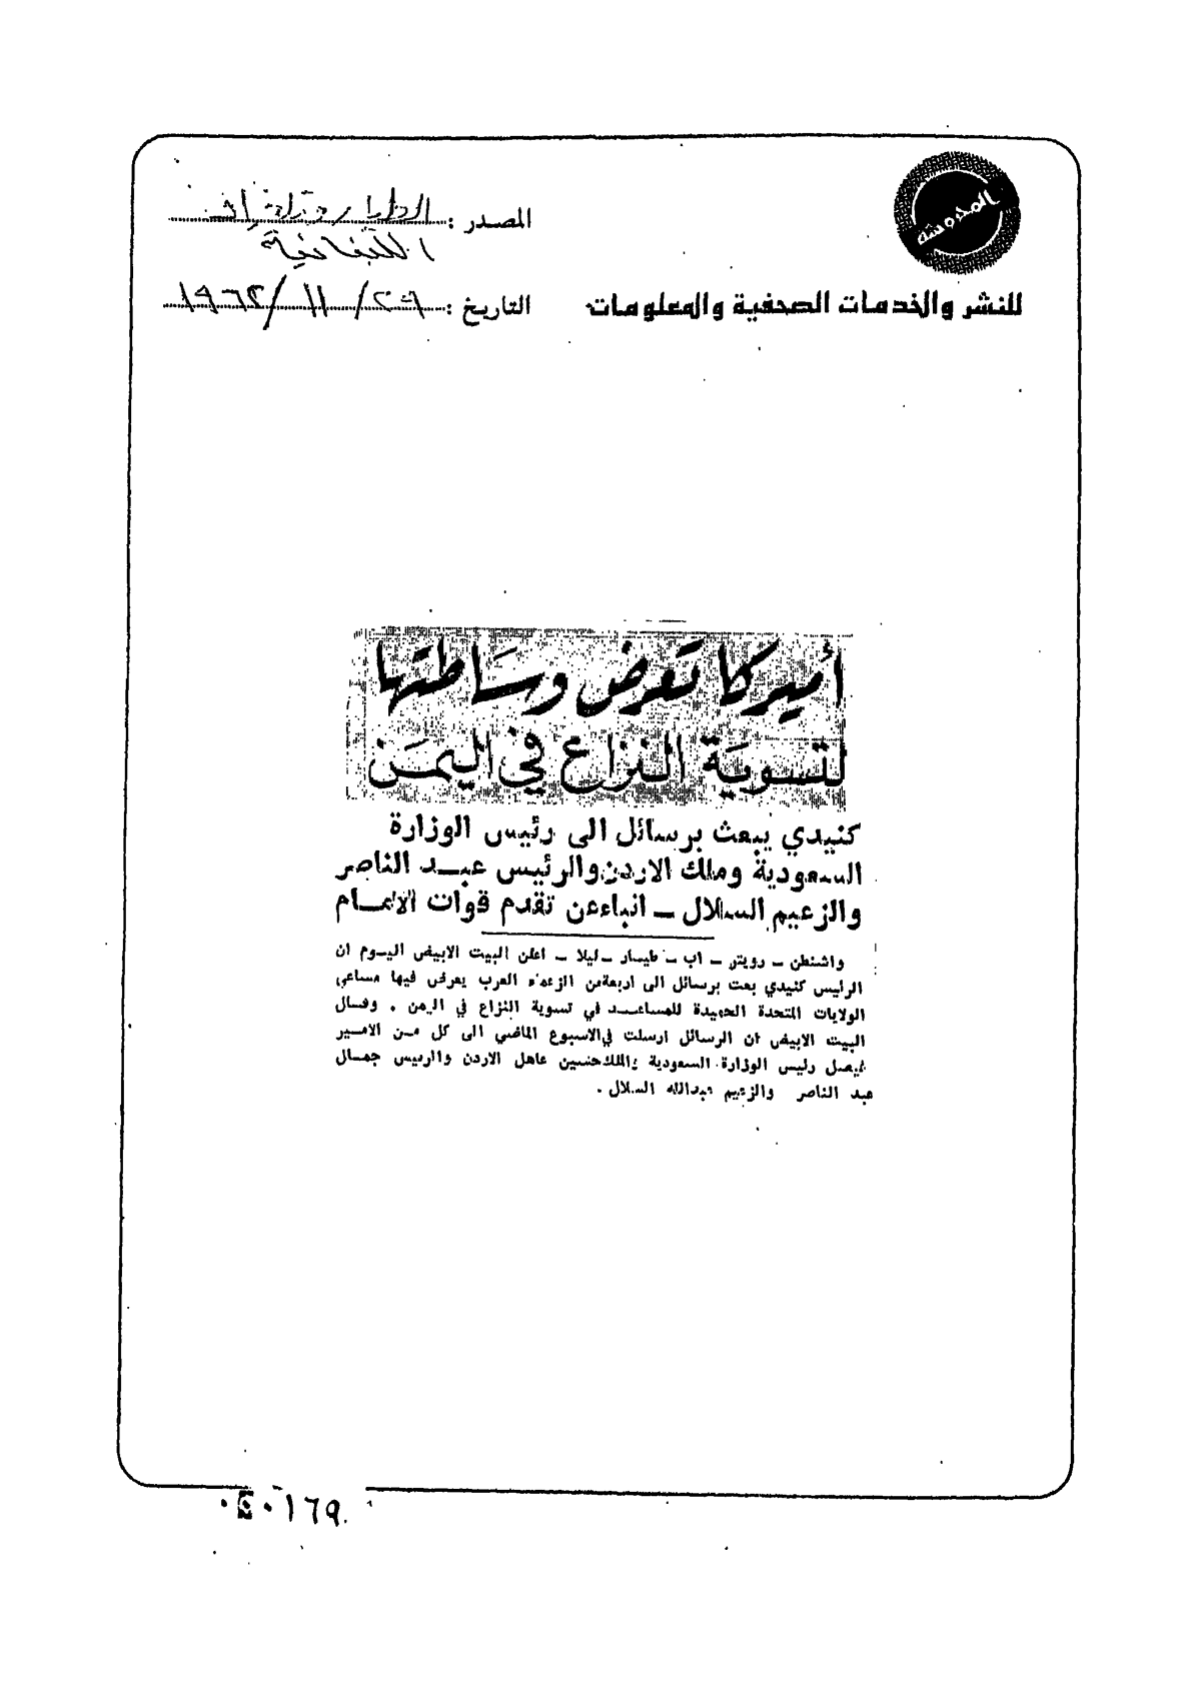 المحروسة
للنشر والخدمات الصحفية والمعلومات
المصدر :
اللبنانية
التاريخ : ٢٩/ ١١ /١٩٦٢
أميركا تعرض وساطتها
لتسوية النزاع في اليمن
كنيدي يبعث برسائل الى رئيس الوزارة
السعودية وملك الاردن والرئيس عبد الناصر
والزعيم السلال - انباء عن تقدم قوات الامام
واشنطن - رويتر - اب - - ليلا - اعلن البيت الابيض اليوم ان
الرئيس كنيدي بعث برسائل الى اربعة من الزعماء العرب يعرض فيها مساعي
الولايات المتحدة الحميدة للمساعدة في تسوية النزاع في اليمن . وقال
البيت الابيض ان الرسائل ارسلت في الاسبوع الماضي الى كل من الامير
فيصل رئيس الوزارة السعودية والملك حسين عاهل الاردن والرئيس جمال
عبد الناصر والزعيم عبدالله السلال .
١٦٩